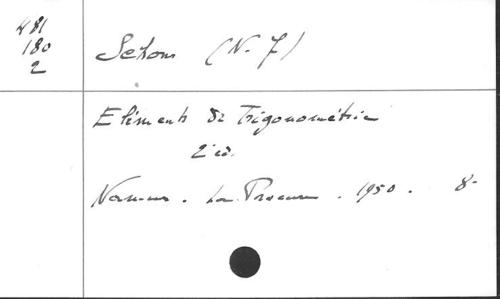 181
180
2
Setons (N. J)
Eléments de Trigonométrie
2e éd.
Namur. La Procure. 1950. 8-